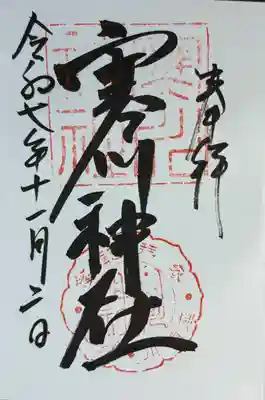 奉拝
寒川神社
令和七年十一月二日